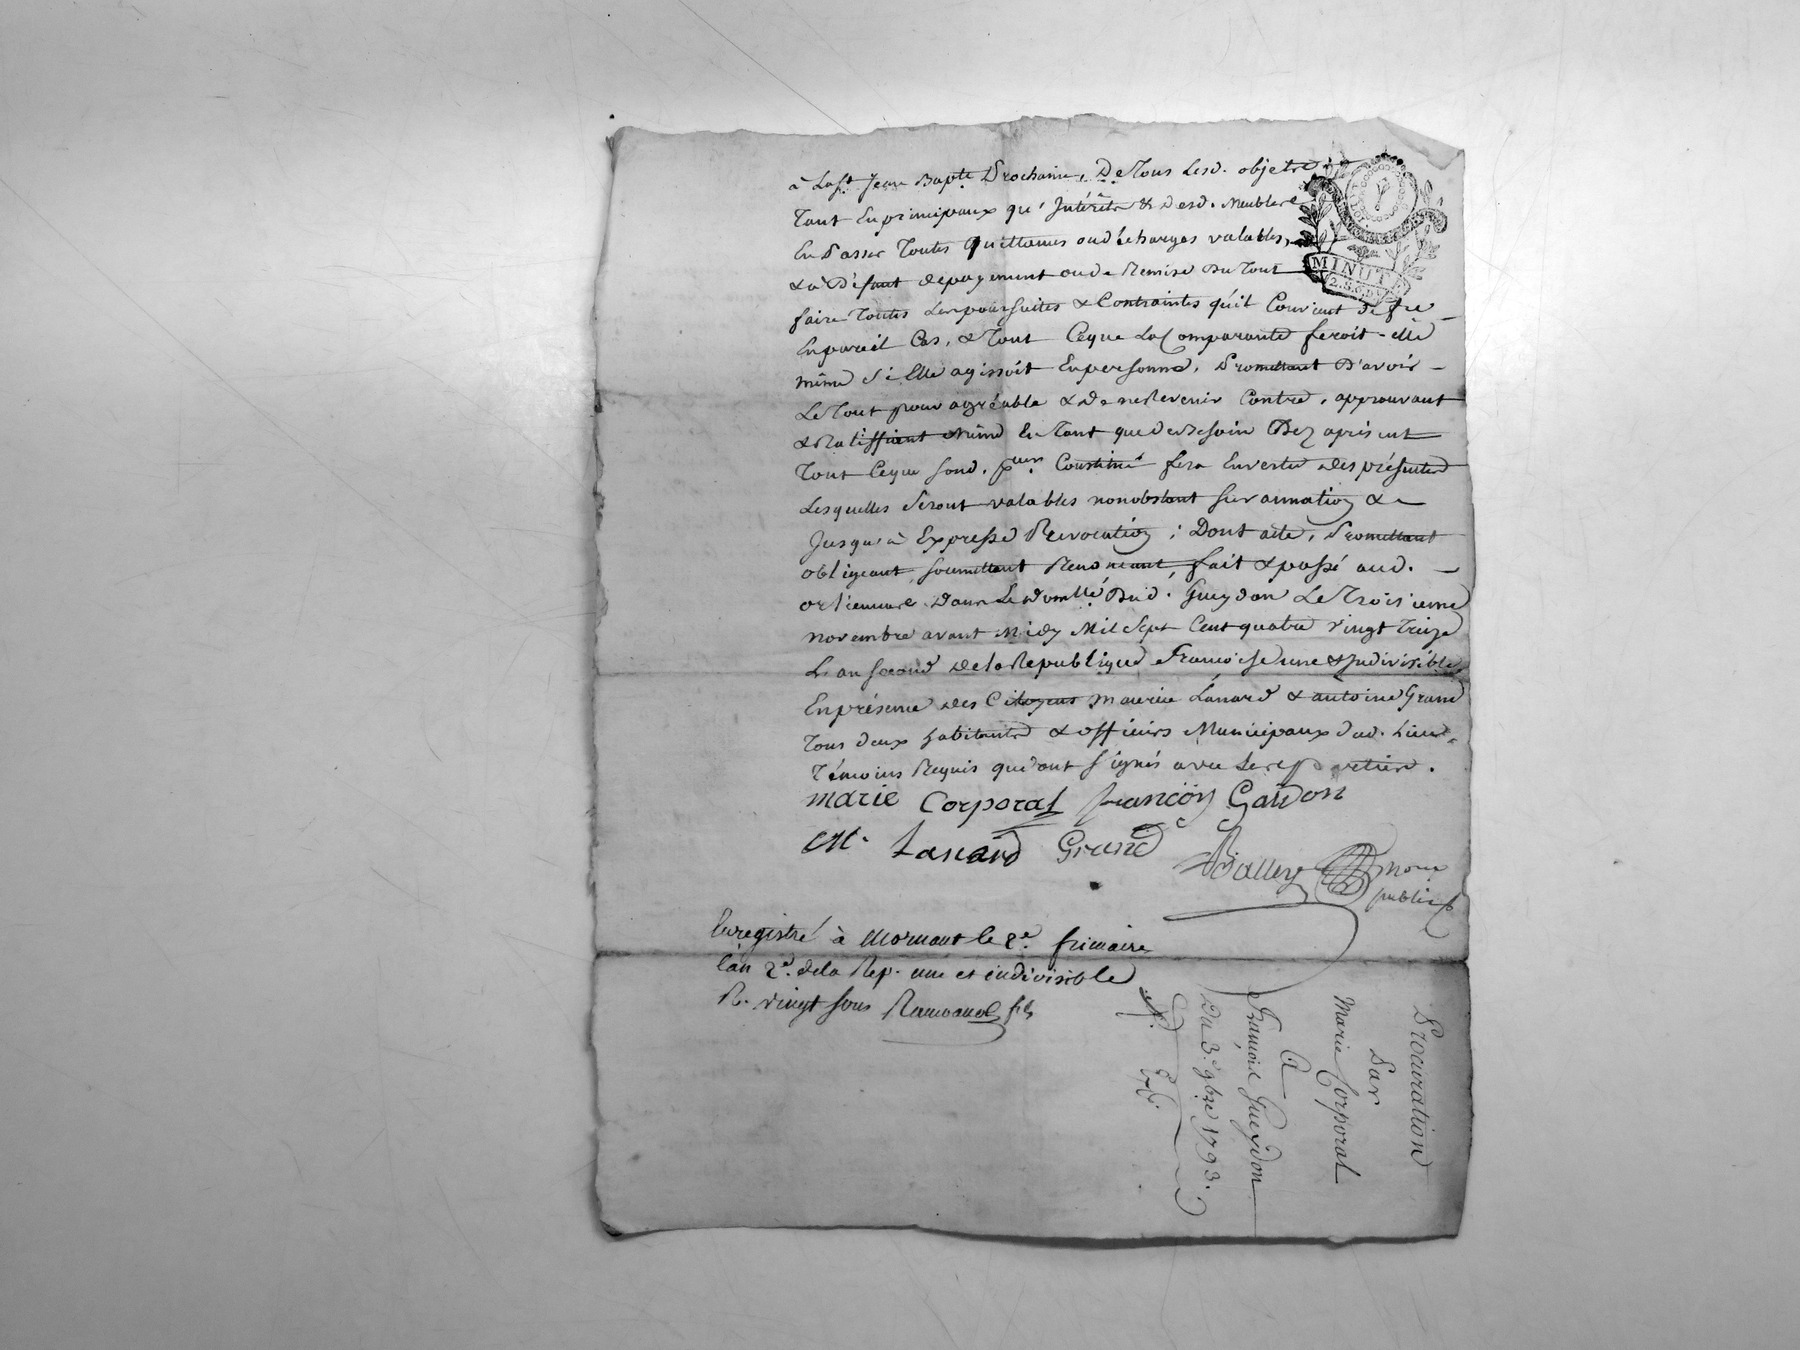 à Jean Bapte. Prochain, De Tous Lesd. objets
Tant En principaux qu'Intérêts & Desd. Meubles
En Passer Toutes Quittances ou décharges valables,
& à Défaut de payement ou de Remise Du Tout
faire Toutes Les poursuites & Contraintes qu'il Convient de fre
En pareil Cas, & Tout Ce que La Comparante feroit elle
même Si Elle agissoit En personne, Promettant D'avoir
Le Tout pour agréable & De ne Revenir Contre, approuvant
& Ratiffiant même En Tant que de Besoin Dez aprésent
Tout Ce que sond. Constitué fera En vertu des présentes
Lesquelles Seront valables nonobstant surannation &
Jusqu'à Expresse Revocation; Dont acte, Promettant
obligeant, soumettant Renonceant, fait & passé aud.
orlienne Dans Le Domlle. Dud. Gueydon Le Troisieme
novembre avant Midy Mil Sept Cent quatre vingt Treize
L'an second de la Republique Françoise une & Indivisible
En présence des Citoyens Maurice Lanard & antoine Grand
Tous deux habitants & officiers Municipaux dud. Lieu
Témoins Requis qui ont signés avec Les parties.
marie Corporal françois Gaidon
M. Lanard Grand
Balley nore
public
MINUTE
Enregistré à Mornant le 8e. frimaire
l'an 2e. de la Rep. une et indivisible
R. vingt sous fils
Procuration
Par
Marie Corporal
A
François Gueydon
Du 3e. 9bre 1793.